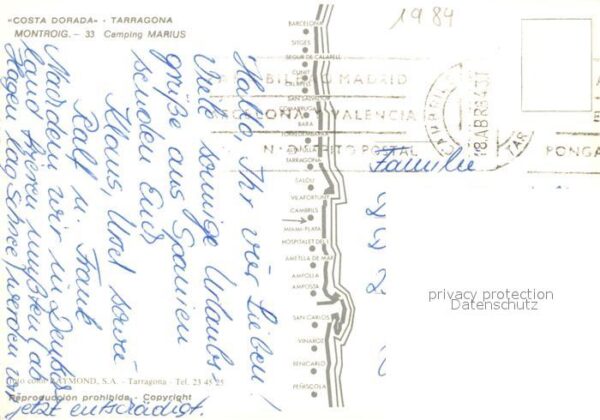 «COSTA DORADA» - TARRAGONA
MONTROIG. - 33 Camping MARIUS
1984
Hallo, Ihr vier Lieben!
Viele sonnige Urlaubs-
grüße aus Spanien
senden Euch
Klaus, Ursel sowie
Ralf u. Frank
Nachdem wir in Deutsch-
land frieren mußten (ab
Hagen lag Schnee) werden wir
jetzt entschädigt.
Familie
BARCELONA
SITGES
SEGUR DE CALAFELL
CUNIT
SAN SALVADOR
COMARRUGA
BARA
TORREDEMBARRA
TARRAGONA
SALOU
VILAFORTUNY
CAMBRILS
MIAMI-PLATA
HOSPITALET DEL I.
AMETLLA DE MAR
AMPOLLA
AMPOSTA
SAN CARLOS
VINAROZ
BENICARLO
PEÑISCOLA
MADRID
BARCELONA VALENCIA
N.º DISTRITO POSTAL
PONGA
18 ABR 84
TAR
privacy protection
Datenschutz
Foto color RAYMOND, S.A. - Tarragona - Tel. 23 45 25
Reproducción prohibida - Copyright